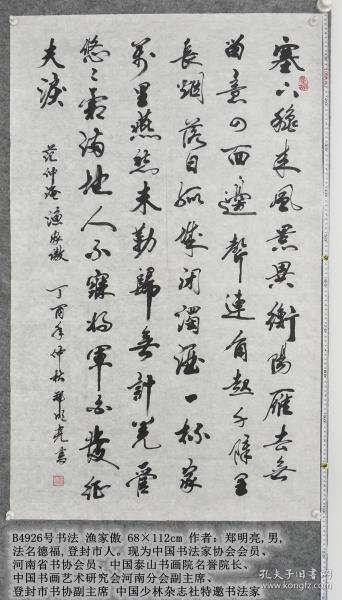 塞下秋来風景異衡陽雁去無
留意四面邊聲連角起千嶂里
長烟落日孤城闭濁酒一杯家
萬里燕然未勒歸無計羌管
悠〻霜满地人不寐将軍白发征
夫淚
范仲淹 渔家傲 丁酉年仲秋 郑明亮書
B4926号书法 渔家傲 68×112cm 作者：郑明亮,男,
法名德福,登封市人。现为中国书法家协会会员、
河南省书协会员、中国泰山书画院名誉院长、
中国书画艺术研究会河南分会副主席、
登封市书协副主席 中国少林杂志社特邀书法家